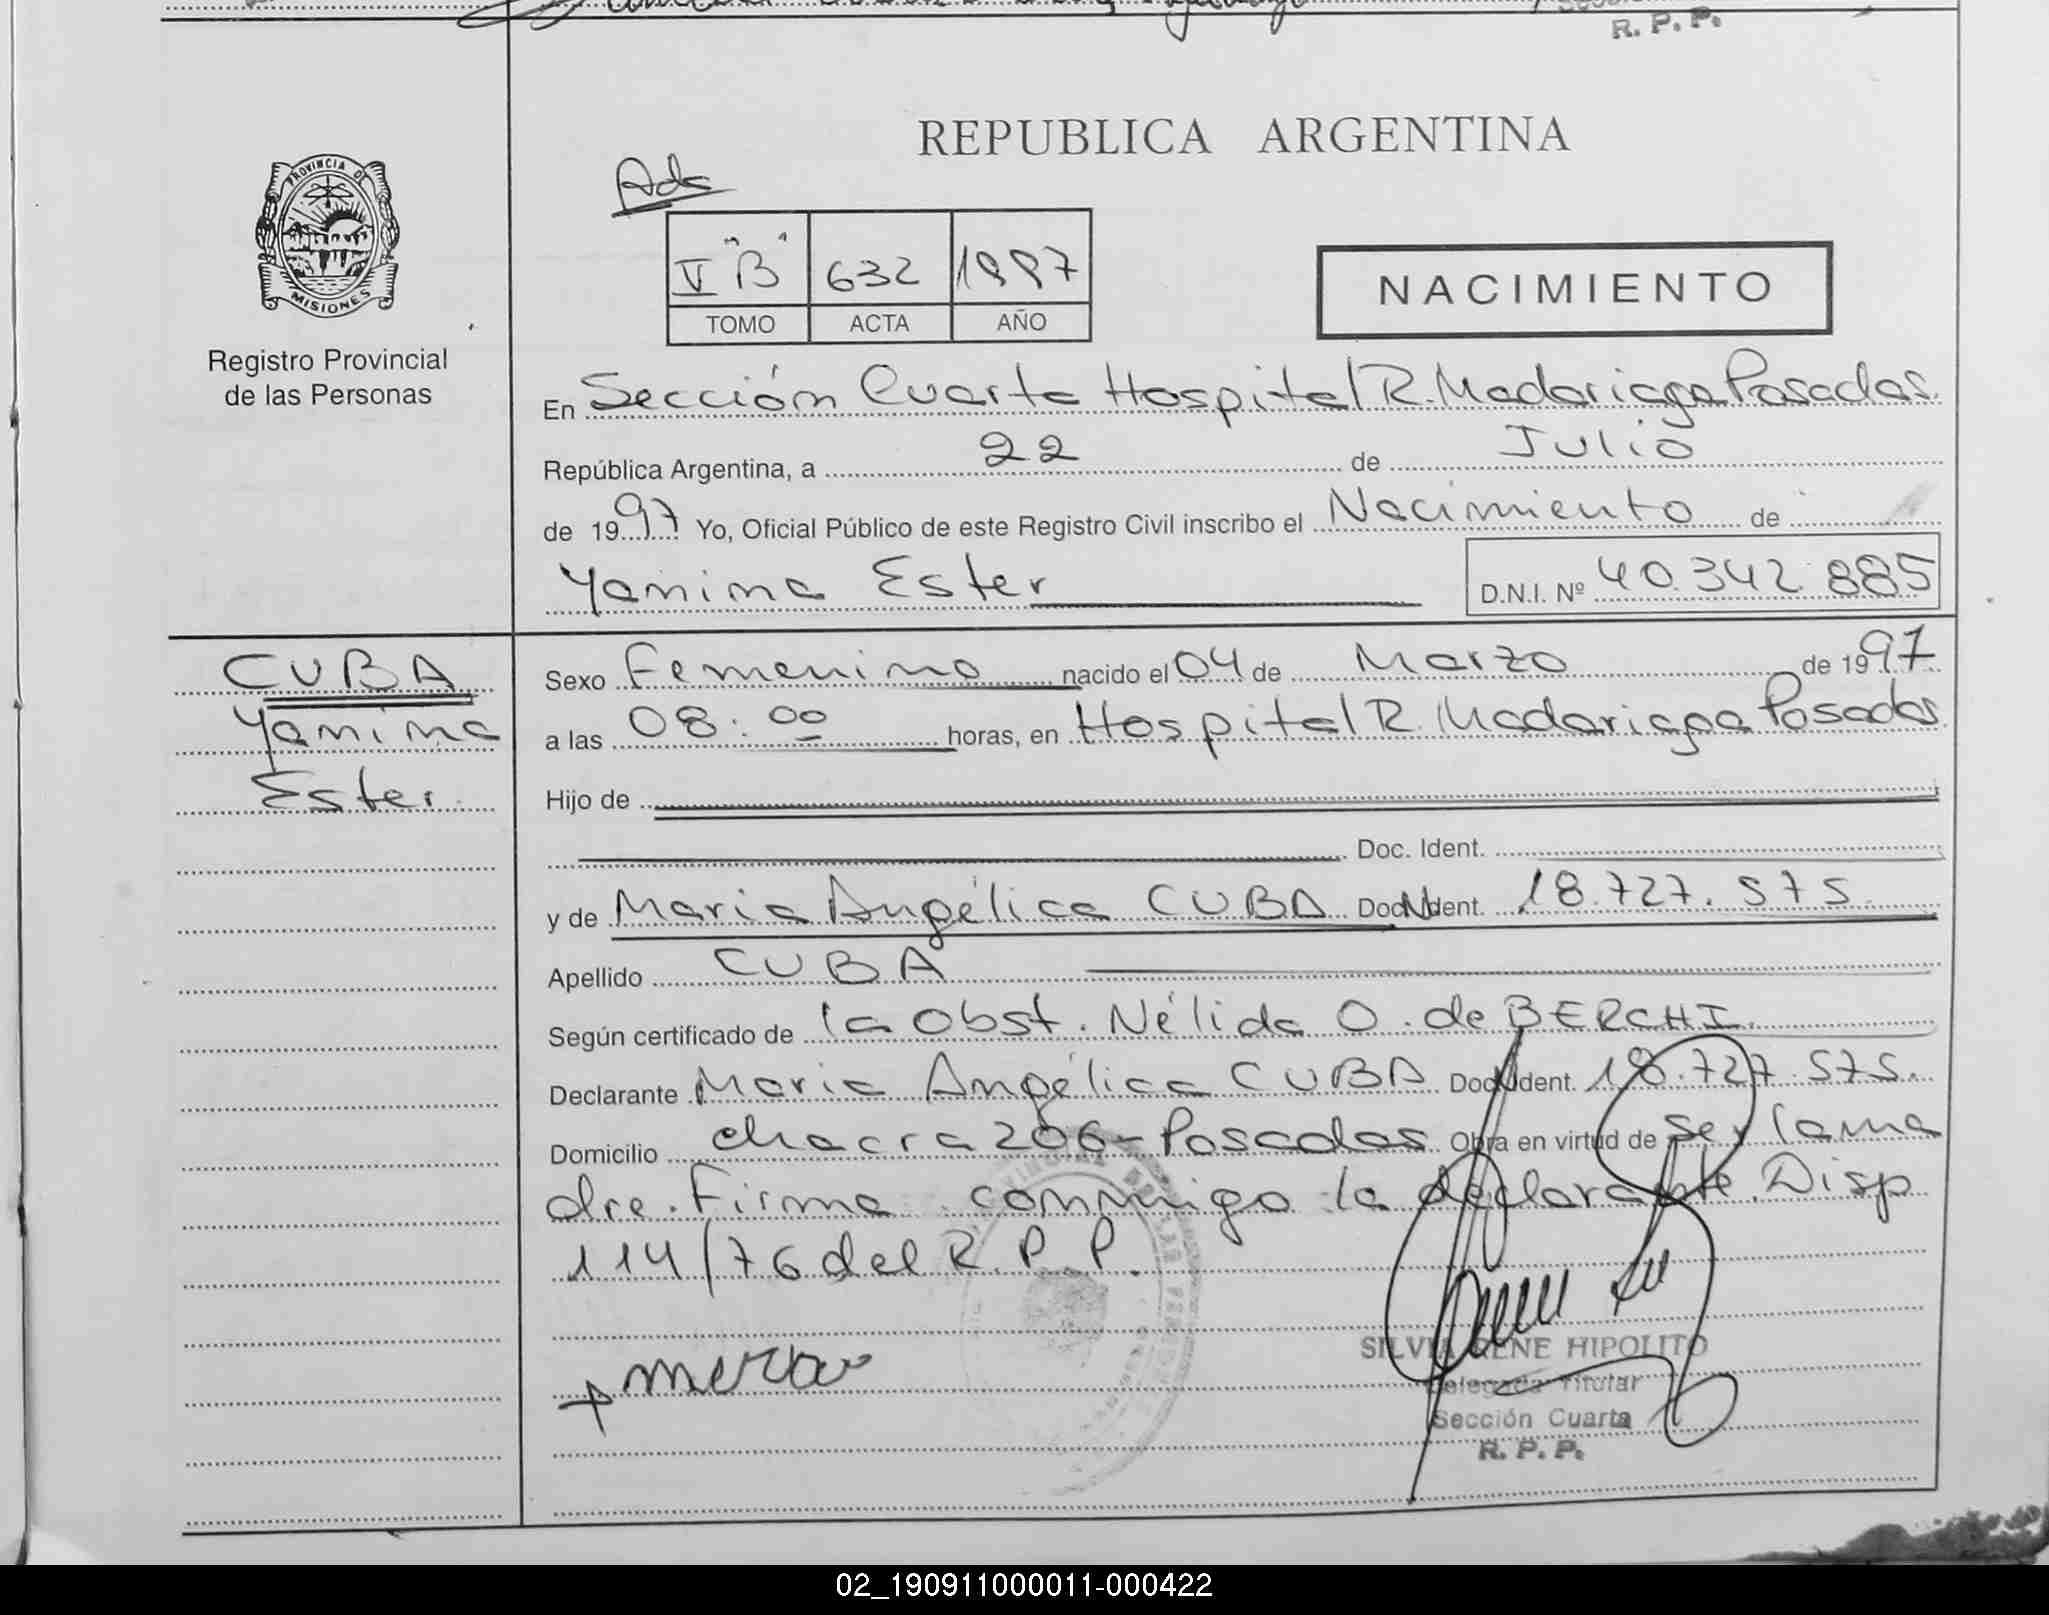 R. P. P.
REPUBLICA ARGENTINA
Ads
PROVINCIA DE
MISIONES
V "B" 632 1997
TOMO ACTA AÑO
NACIMIENTO
Registro Provincial
de las Personas
En Sección Cuarta Hospital R. Madariaga Posadas.
República Argentina, a 22 de Julio
de 1997 Yo, Oficial Público de este Registro Civil inscribo el Nacimiento de
Yanina Ester D.N.I. Nº 40.342.885
CUBA
Yanina
Ester
Sexo Femenino nacido el 04 de Marzo de 1997
a las 08:00 horas, en Hospital R. Madariaga Posadas.
Hijo de
Doc. Ident.
y de Maria Angélica CUBA Doc. Ident. 18.727.575
Apellido CUBA
Según certificado de la Obst. Nélida O. de BERCHI.
Declarante Maria Angélica CUBA Doc. Ident. 18.727.575.
Domicilio chacra 206 - Posadas Obra en virtud de ser la ma
dre. Firma conmigo la declarante. Disp
114/76 del R. P. P.
SILVIA RENE HIPOLITO
Delegada Titular
Sección Cuarta
R. P. P.
02_190911000011-000422